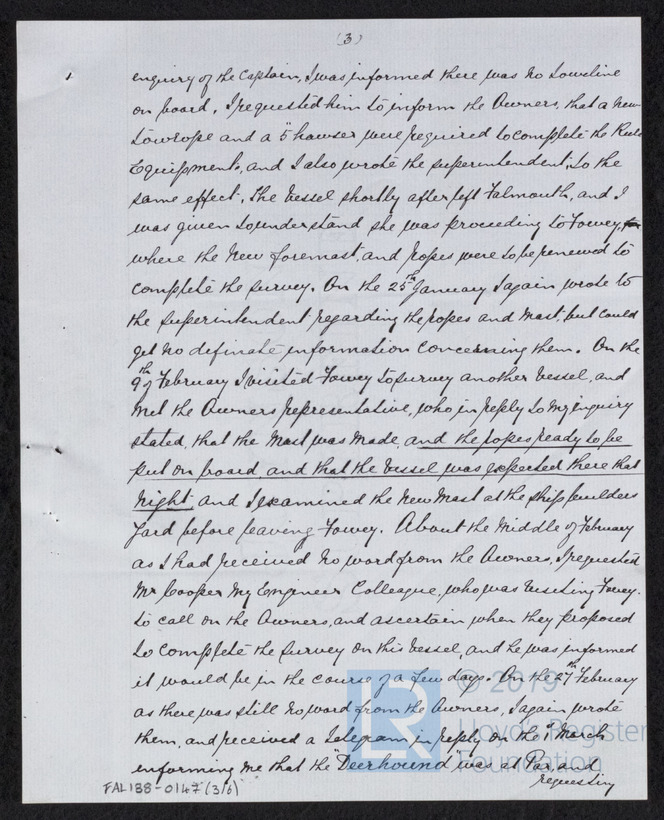 (3)
enquiry of the Captain, I was informed there was no Towline
on board, I requested him to inform the Owners, that a new
Towrope and a 5" hawser were required to complete the Rule
Equipment, and I also wrote the superintendent, to the
same effect. The Vessel shortly after left Falmouth, and I
was given to understand she was proceding to Fowey,
where the New foremast, and ropes were to be renewed to
complete the survey. On the 25th January I again wrote to
the superintendent regarding the ropes and mast, but could
get no definate information concerning them. On the
9th of February I visited Fowey to survey another Vessel, and
met the Owners representative, who in reply to my inquiry
stated, that the Mast was made, and the ropes ready to be
put on board and that the Vessel was expected there that
Night: and I examined the New Mast at the ship builders
Yard before leaving Fowey. About the Middle of February
as I had received no word from the Owners, I requested
Mr Cooper my Engineer Colleague, who was Visiting Fowey.
to call on the Owners, and ascertain when they proposed
to complete the survey on this Vessel, and he was informed
it would be in the course of a few days. On the 27th February
as there was still no word from the Owners, I again wrote
them, and received a Telegram in reply on the 1st March
informing me that the "Deerhound" was at Par and
requesting
FAL138-0147(3/6)
© 2019
Lloyd's Register
Foundation
LR